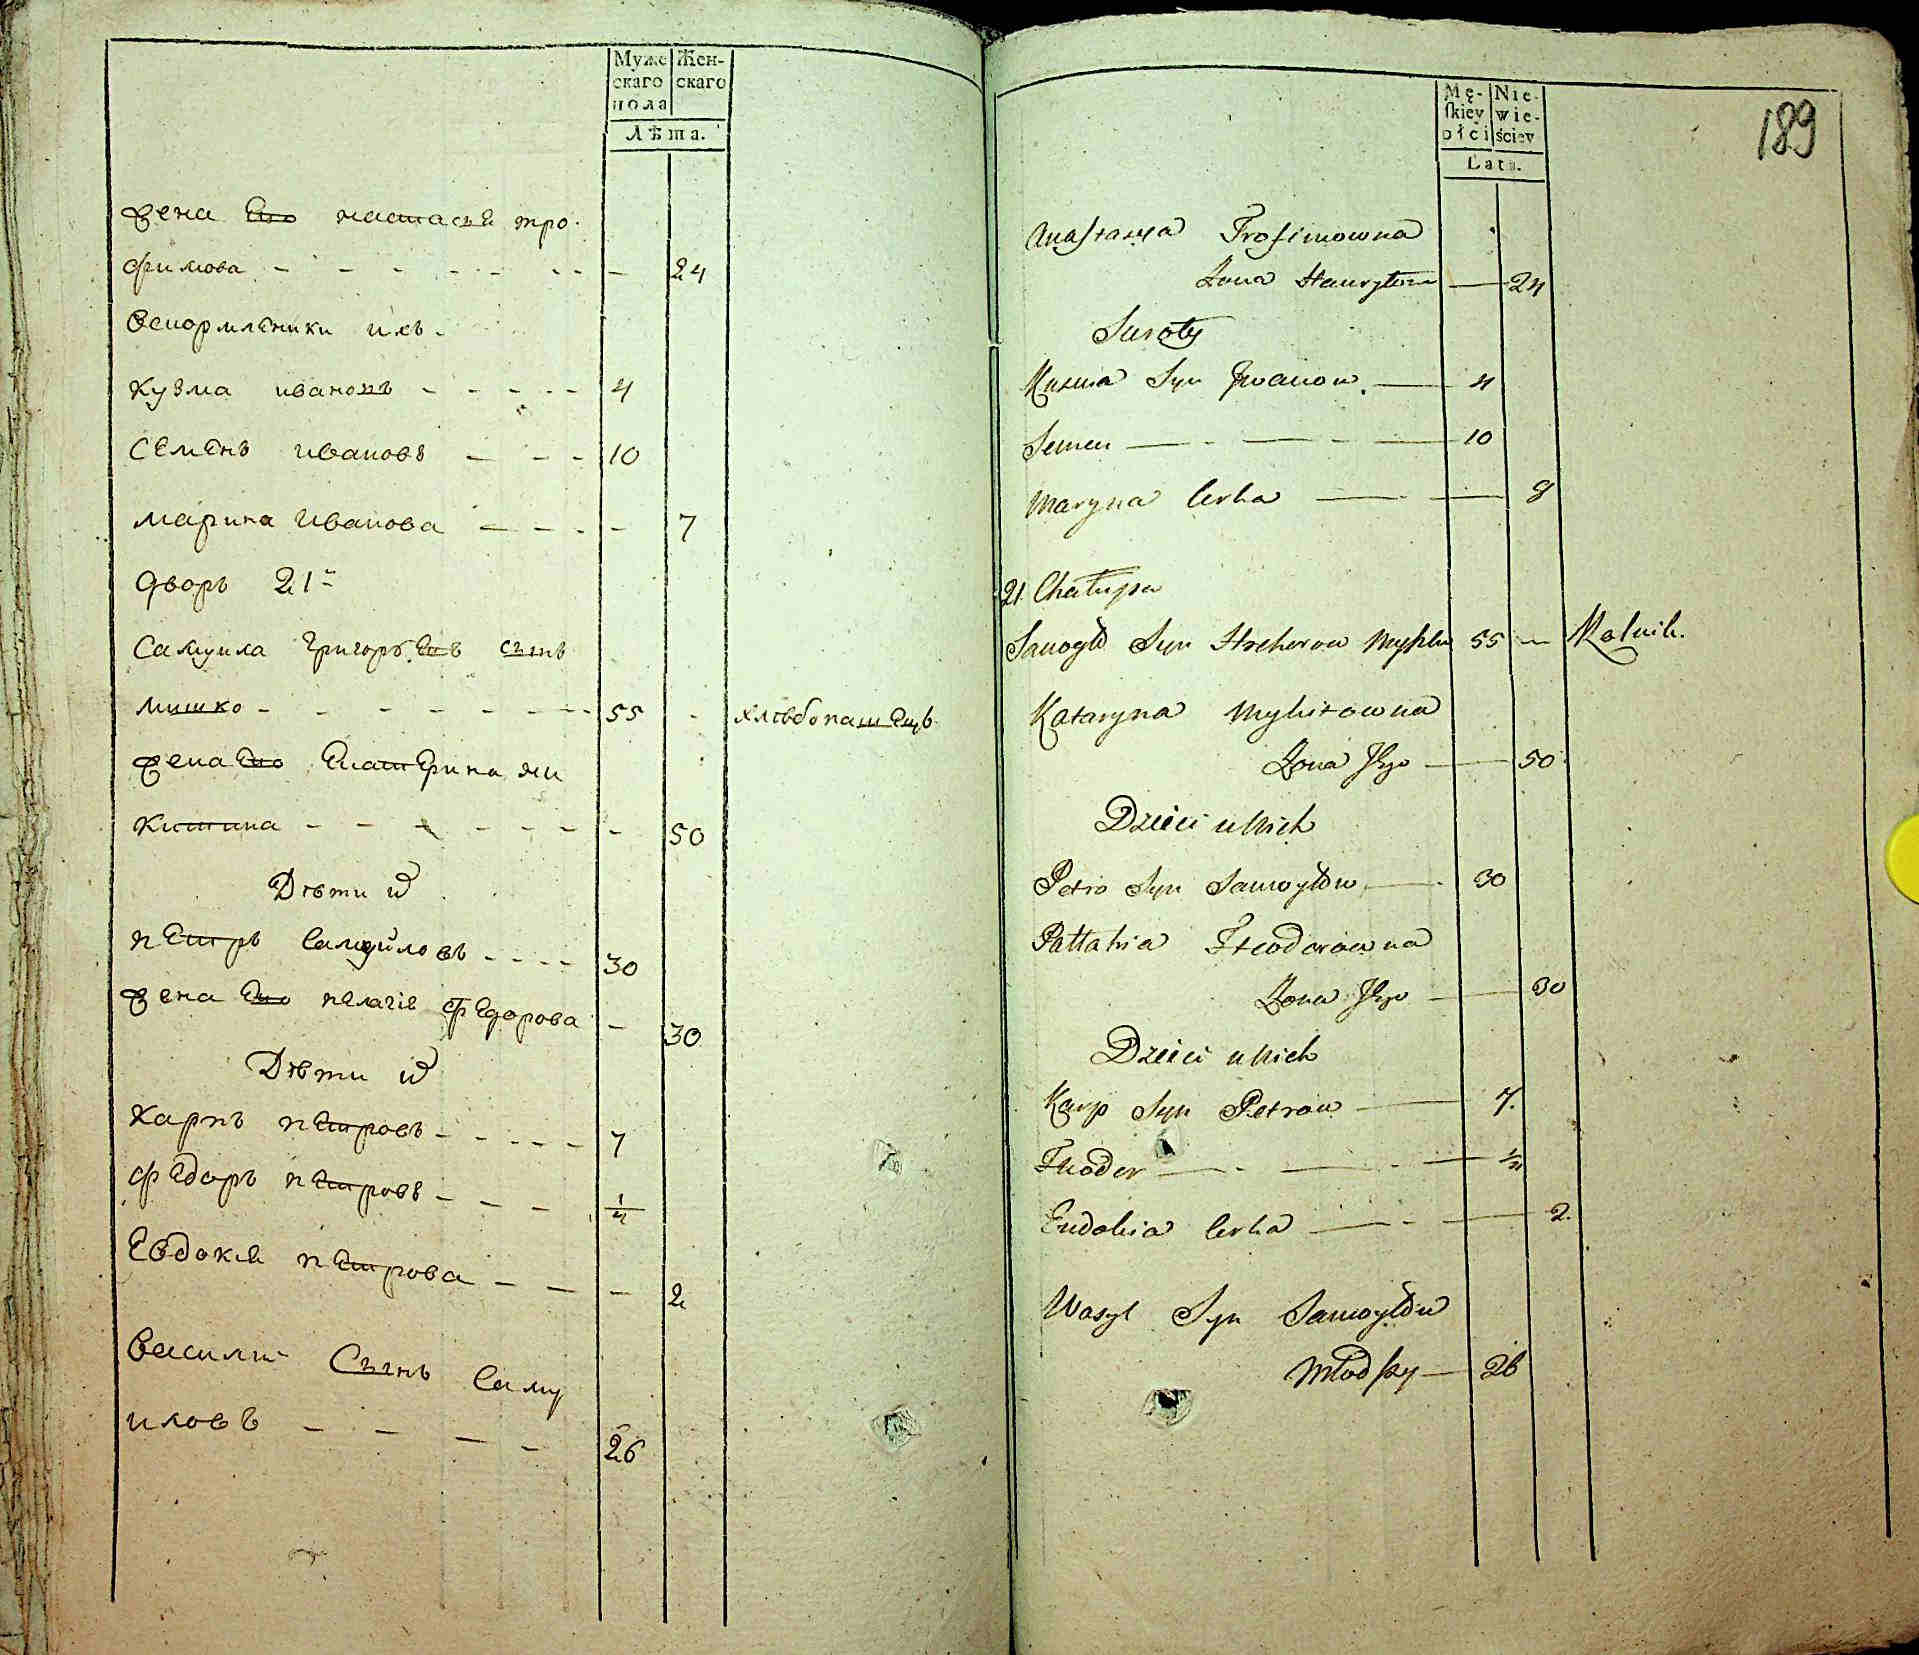 Муже Жен-
скаго скаго
пола
Лѣта.
жена Его настасия тро-
фимова - - - - - - - 24
Вскормлѣники ихъ.
Кузма ивановъ - - - - - 4
Семенъ ивановъ - - - 10
марина иванова - - - - - 7
дворъ 21й
Самуила григорьевъ сынъ
мишко - - - - - - - 55 - хлѣбопашецъ
жена Его Екатерина ми
китина - - - - - - - - 50
Дѣти их
петръ Самуйловъ - - - - 30
жена Его пелагіе федорова - 30
Дѣти их
Карпъ петровъ - - - - - 7
федоръ петровъ - - - - 1/4
Евдокия петрова - - - 2
василий Сынъ Саму
иловъ - - - - 26
Mę- Nie-
skiey wie-
płci ściey
Lata.
189
Anastazya Trofimowna
Zona — 24
Suroty
Kuzma Syn Jwanow — 4
Semen — - — - — 10
Maryna Corka — - — 8
21. Chałupa
Samoyło Syn Hrehorow Myszko 55 — Rolnik.
Kataryna Mykitowna
Zona Jego — 50
Dzieci u Nich
Petro Syn Samoyłow — 30
Pallahia Fteodorowna
Zona Jego — 30
Dzieci u Nich
Karp Syn Petrow — 7.
Fteodor — - — - — 1/4
Eudokia Corka — - — 2.
Wasyl Syn Samoyłow
Młodszy — 26